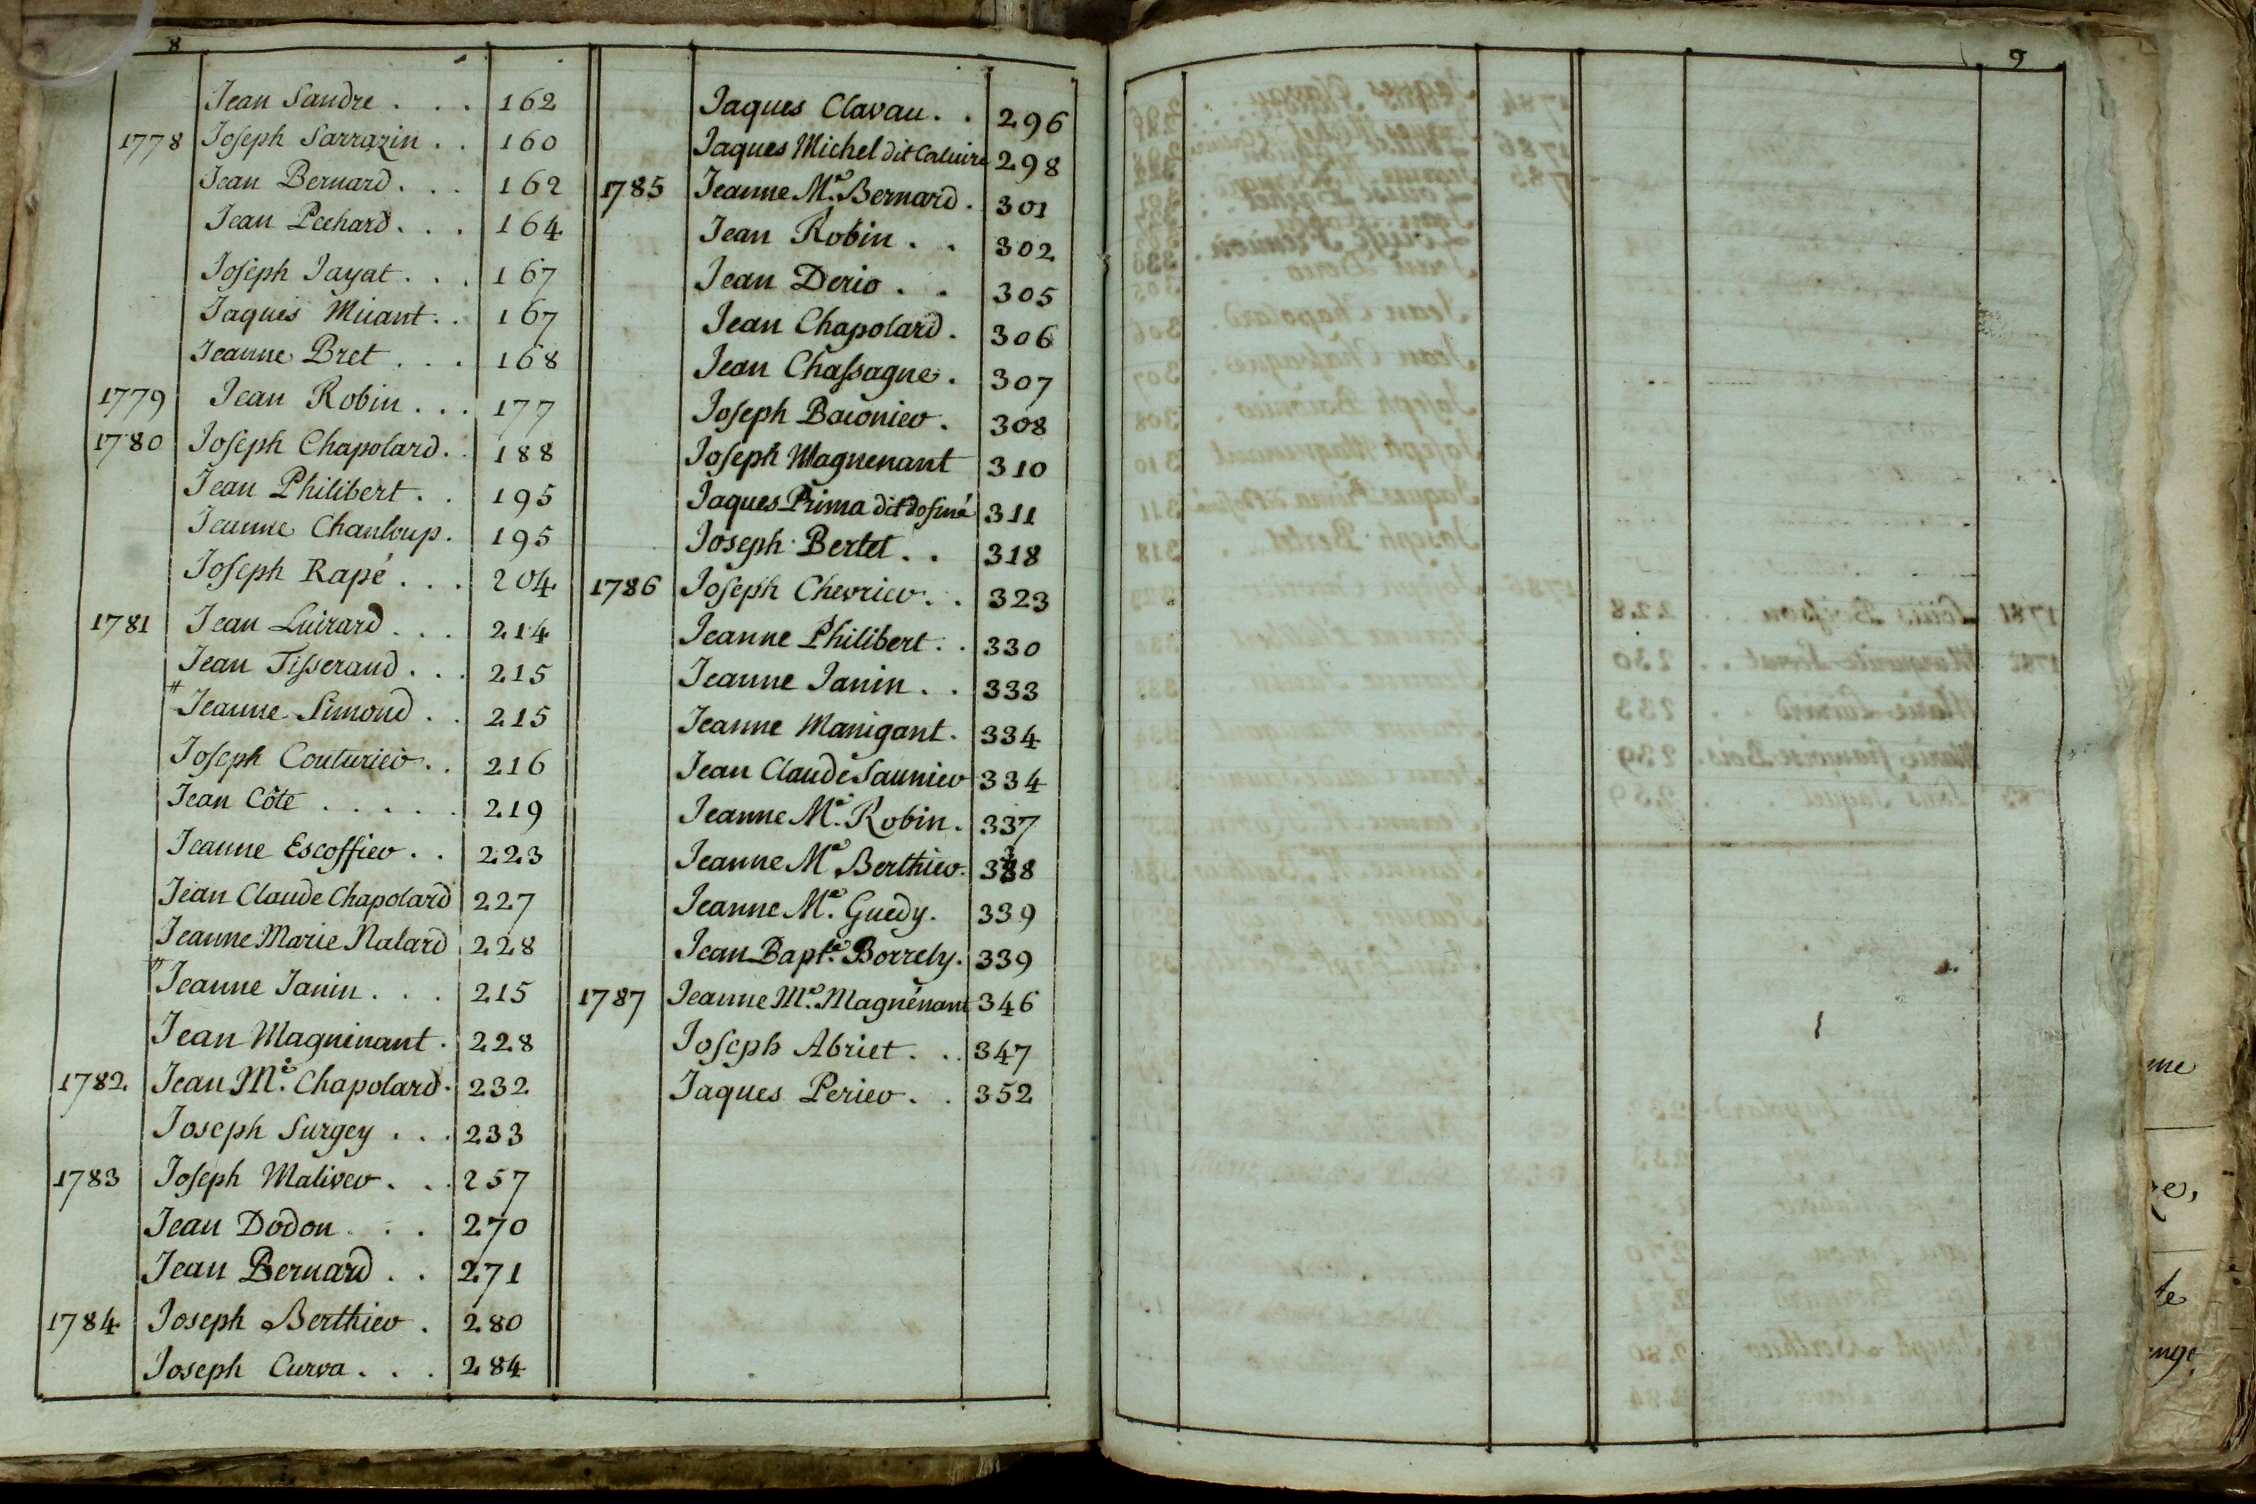 8
Jean Sandre . . . 162
1778 Joseph Sarrazin . . 160
Jean Bernard . . . 162
Jean Pechard . . . 164
Joseph Jayat . . . 167
Jaques Miiant . . 167
Jeanne Bret . . . 168
1779 Jean Robin . . . 177
1780 Joseph Chapolard . . 188
Jean Philibert . . 195
Jeanne Chanloup . 195
Joseph Rapé . . . 204
1781 Jean Luirard . . . 214
Jean Tisserand . . . 215
# Jeanne Simond . . 215
Joseph Couturier . . 216
Jean Côte . . . . . 219
Jeanne Escoffier . . 223
Jean Claude Chapolard 227
Jeanne Marie Nalard 228
# Jeanne Janin . . . 215
Jean Magninant . 228
1782 Jean Me. Chapolard . 232
Joseph Surgey . . . 233
1783 Joseph Maliver . . . 257
Jean Dodon . . . 270
Jean Bernard . . 271
1784 Joseph Berthier . 280
Joseph Curva . . . 284
Jaques Clavau . . 296
Jaques Michel dit Caluire 298
1785 Jeanne Me. Bernard . 301
Jean Robin . . 302
Jean Derio . . 305
Jean Chapolard . 306
Jean Chassagne . 307
Joseph Baconier . 308
Joseph Magnenant 310
Jaques Prima dit dosiné 311
Joseph Bertet . . 318
1786 Joseph Chevrier . . 323
Jeanne Philibert . . 330
Jeanne Janin . . 333
Jeanne Manigant . 334
Jean Claude Saunier 334
Jeanne Me. Robin . 337
Jeanne Me. Berthier . 338
Jeanne Me. Guedy . 339
Jean Bapte. Borrely . 339
1787 Jeanne Me. Magnénant 346
Joseph Abriet . . . 347
Jaques Perier . . 352
9